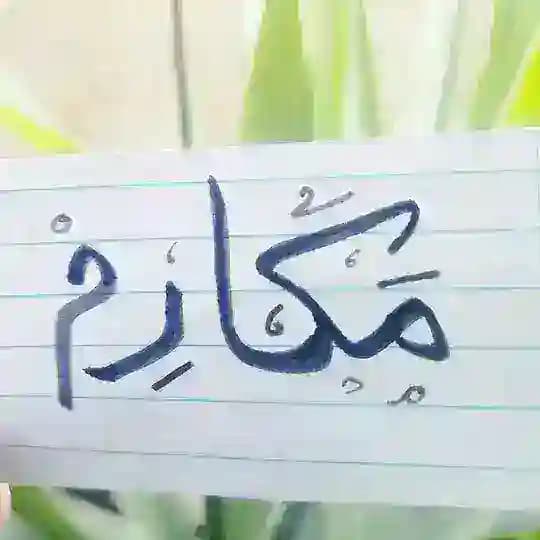 مَكَارِمْ